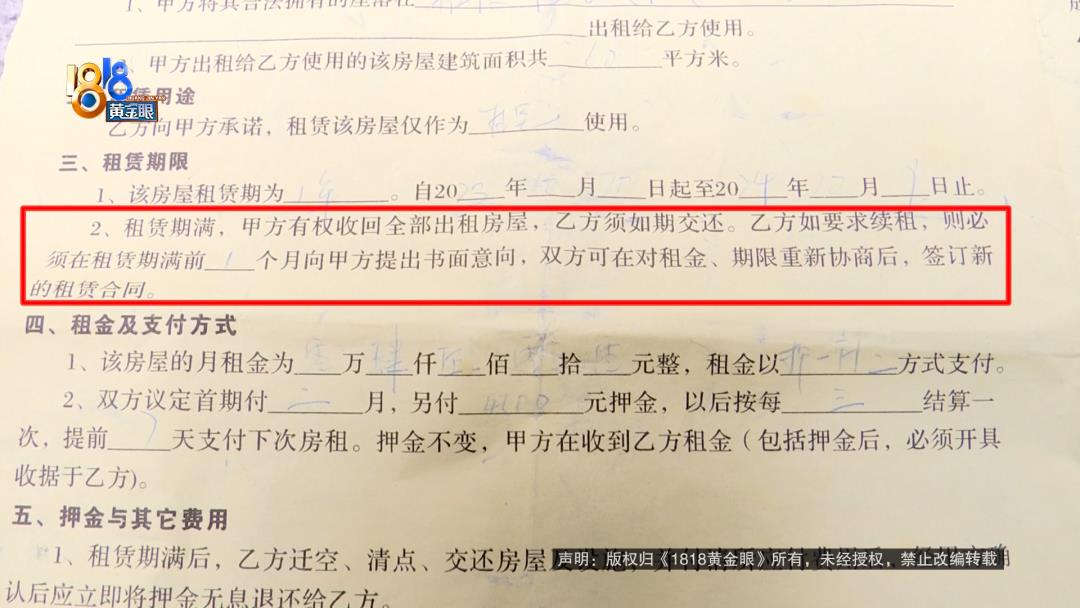 1、甲方将其合法拥有的座落在
出租给乙方使用。
甲方出租给乙方使用的该房屋建筑面积共 60 平方米。
1818
黄金眼
用途
乙方向甲方承诺，租赁该房屋仅作为 使用。
三、租赁期限
1、该房屋租赁期为 1年 。自20 年 月 日起至2024年 月 日止。
2、租赁期满，甲方有权收回全部出租房屋，乙方须如期交还。乙方如要求续租，则必
须在租赁期满前 1 个月向甲方提出书面意向，双方可在对租金、期限重新协商后，签订新
的租赁合同。
四、租金及支付方式
1、该房屋的月租金为 万 仟 佰 拾 元整，租金以 方式支付。
2、双方议定首期付 三 月，另付 元押金，以后按每 三 结算一
次，提前 7 天支付下次房租。押金不变，甲方在收到乙方租金（包括押金后，必须开具
收据于乙方)。
五、押金与其它费用
1、租赁期满后，乙方迁空、清点、交还房屋
声明：版权归《1818黄金眼》所有，未经授权，禁止改编转载
认后应立即将押金无息退还给乙方。